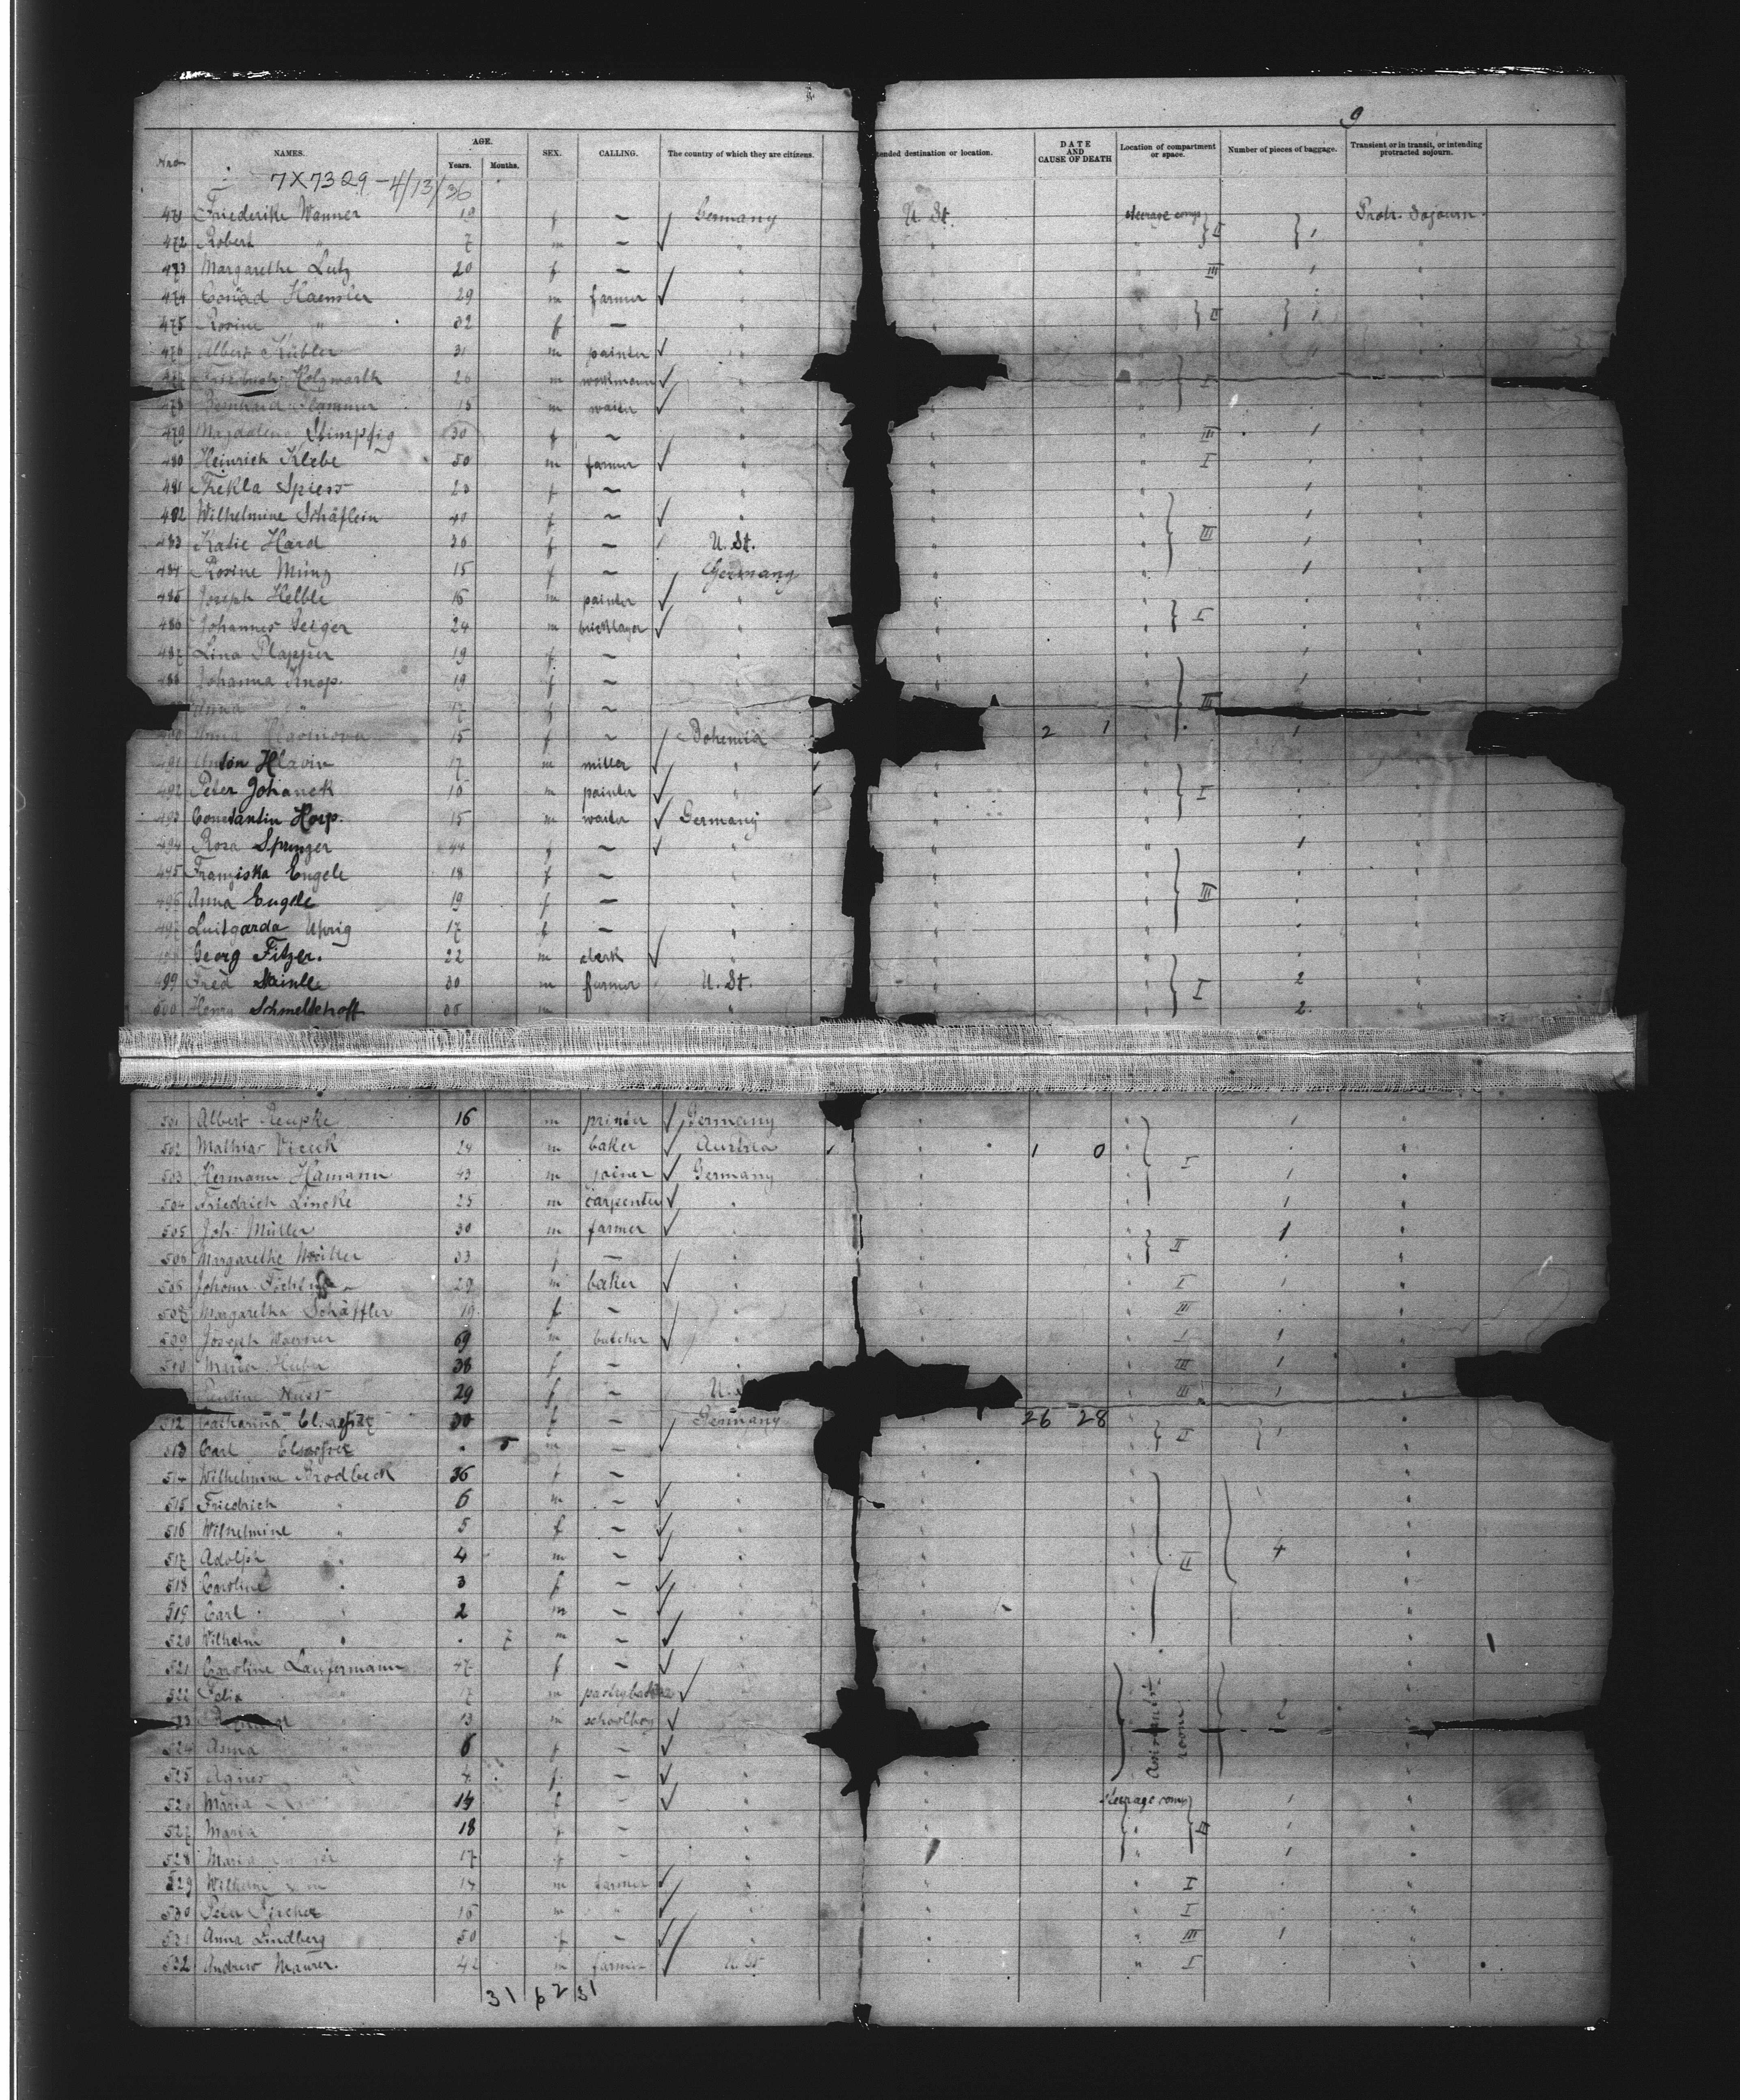 9
Nro NAMES. AGE. Years. Months. SEX. CALLING. The country of which they are citizens. tended destination or location. DATE AND CAUSE OF DEATH Location of compartment or space. Number of pieces of baggage. Transient or in transit, or intending protracted sojourn.
7X7329-4/13/36
471 Friederike Wanner 19 f — Germany U. St. steerage comp. II 1 Protr. Sojourn.
472 Robert " 7 m — "
473 Margarethe Lutz 20 f — " III 1
474 Conrad Haensler 29 m farmer "
475 Rosine " 32 f — " II 1
476 Albert Kübler 31 m painter "
477 Friedrich Holzwarth 26 m workmann " I
478 Bernhard Hammer 15 m waiter "
479 Magdalena Stimpfig 30 f — " III 1
480 Heinrich Klebe 50 m farmer " I
481 Thekla Spiess 20 f — " 1
482 Wilhelmine Schäflein 40 f — " 1
483 Katie Hard 30 f — U. St. III 1
484 Rosine Münz 15 f — Germany 1
485 Joseph Helble 16 m painter "
486 Johannes Seeger 24 m bricklayer " I
487 Lina Plapper 19 f — " 1
488 Johanna Knop. 19 f — " 1
Anna " 17 f — " III
490 Anna 15 f — Bohemia 2 1 1
491 Anton Hlavin 17 m miller "
492 Peter Johanek 16 m painter " I
493 Constantin Horp. 15 m waiter Germany
494 Rosa Springer 44 f — " 1
495 Franziska Engele 18 f — "
496 Anna Engele 19 f — " III
497 Luitgarda Uhrig 17 f — "
Georg Fitzer. 22 m clerk "
499 Fred Stainle 30 m farmer U. St. I 2
500 Henry Schmelsehoff m " 2.
501 Albert Repke 16 m printer Germany 1
502 Mathias Vicek 24 m baker Austria 1 0
503 Hermann Hamann 43 m joiner Germany I 1
504 Friedrich Lincke 25 m carpenter " 1
505 Joh. Müller 30 m farmer " 1
506 Margarethe Müller 33 f — " II
Johann 29 m baker " I 1
508 Margaretha Schäffler 19 f — " III
509 Joseph Woerner 69 m butcher " I 1
510 Maria Huber 38 f — " III 1
Pauline 29 f — U. S III 1
512 Catharina 30 f — Germany 26 28
513 Carl 5 m — " II 1
514 Wilhelmine Brodbeck 36 f — "
515 Friedrich " 6 m — "
516 Wilhelmine " 5 f — "
517 Adolph " 4 m — " II 4
518 Caroline " 3 f — "
519 Carl " 2 m — "
520 Wilhelm " 7 m — "
521 Caroline Laufermann 47 f — "
522 Felix " 17 m pastrybaker "
523 13 m schoolboy " Assistants room 2
524 Anna " 6 f — "
525 Agnes " 4 f — "
526 Maria 14 f — " steerage comp. 1
527 Maria 18 f — " III 1
528 Maria 17 f — " 1
529 Wilhelm 14 m farmer " I
530 Peter Fircher 16 m " " I
531 Anna Lindberg 50 f — " III 1
532 Andrew Maurer. 42 m farmer U. St I
31 62 31